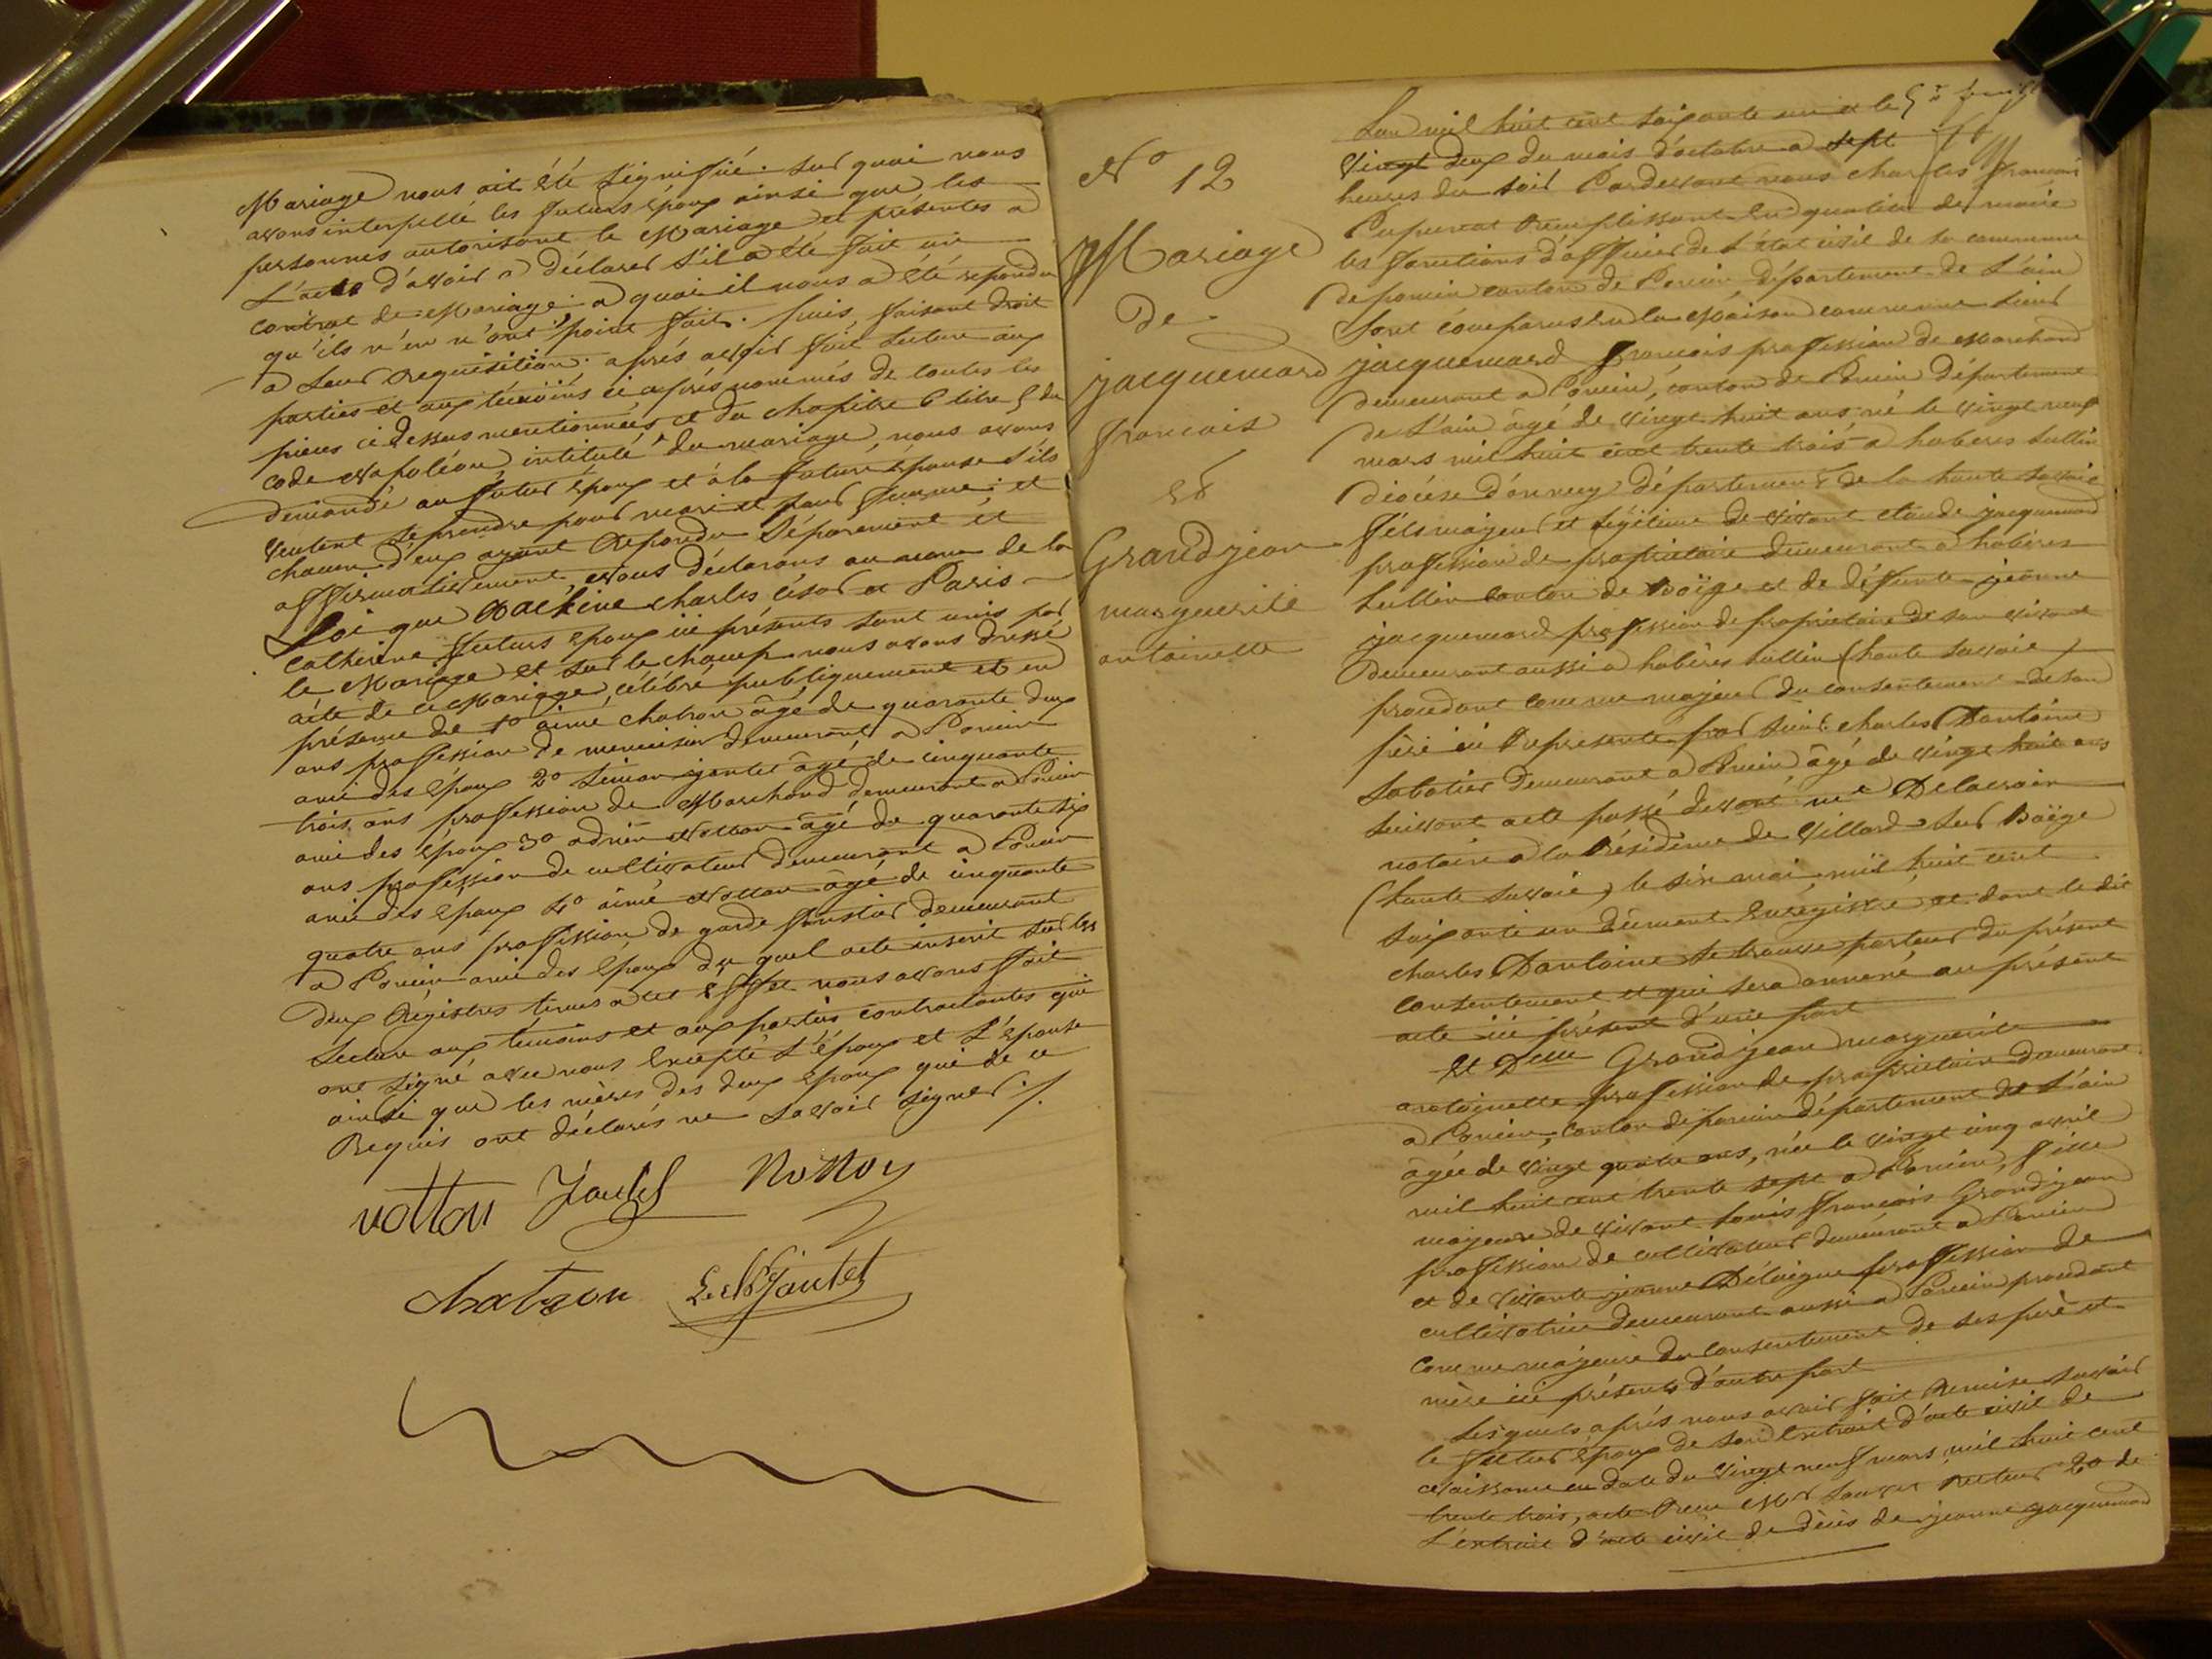 Mariage nous ait été signifié. sur quoi nous
avons interpellé les futurs époux ainsi que les
personnes autorisant le Mariage et présentes a
L'acte d'avoir a déclarer s'il a été fait un
contrat de Mariage; a quoi il nous a été repondu
qu'ils n'en n'ont point fait. puis, faisant droit
a leur requisition. aprés avoir fait lecture aux
parties et aux témoins ci aprés nommés de toutes les
pieces ci dessus mentionnées et du chapitre 6 titre 5 du
code Napoléon, intitulé du mariage, nous avons
demandé au futur époux et à la future épouse s'ils
veulent se prendre pour mari et pour femme; et
chacun d'eux ayant repondu séparement et
affirmativement, Nous déclarons au nom de la
Loi que charles césar et Paris
Catherine futurs époux ici présents sont unis par
le Mariage et sur le champ nous avons dressé
acte de ce Mariage, célébré publiquement et en
présence de 1º aimé chatron âgé de quarante deux
ans profession de menuisier demeurant a Poncin
ami des époux 2º simon jantet âgé de cinquante
trois ans profession de Marchand demeurant a Poncin
ami des époux 3º adrien Notton âgé de quarante six
ans profession de cultivateur demeurant a Poncin
ami des époux 4º aimé Notton âgé de cinquante
quatre ans profession de garde forestier demeurant
a Poncin ami des époux du quel acte inscrit sur les
deux Régistres tenus a cet effet nous avons fait
Lecture aux témoins et aux parties contractantes qui
ont signé avec nous Excepté L'époux et L'épouse
ainsi que les mères des deux époux qui de ce
Requis ont déclarés ne savoir signer ./.
notton Jantet Notton
chatron Jantet
Nº 12
Mariage
de
jacquemard
françois
et
Grandjean
marguerite
antoinette
L'an mil huit cent soixante un et le
Vingt deux du mois d'octobre a sept
heures du soir Pardevant nous charles françois
remplissant en qualité de maire
les fonctions d'officier de L'état civil de la commune
de poncin canton de Poncin département de L'ain
sont comparus en la Maison commune sieur
jacquemard françois profession de Marchand
demeurant a Poncin, canton de Poncin département
de L'ain âgé de vingt huit ans né le vingt neuf
mars mil huit cent trente trois a habères lullin
diocèse d'annecy département de la haute savoie
fils majeur et légitime de vivant claude jacquemard
profession de propriétaire demeurant a habères
lullin canton de Boëge et de défunte jeanne
jacquemard profession de propriétaire de son vivant
demeurant aussi a habères lullin (haute savoie)
procedant comme majeur du consentement de son
père ici représenté par sieur charles Dantoine
Sabotier demeurant a Poncin âgé de vingt huit ans
suivant acte passé devant me Delavoin
notaire a la Résidence de Villard sur Boëge
(haute savoie) le six mai mil huit cent
soixante un dûment Enregistré, et dont le dit
charles Dantoine se trouve porteur du présent
consentement et qui sera annexé au présent
acte ici présent d'une part
Et Delle Grandjean marguerite
antoinette profession de propriétaire demeurant
a Poncin, canton de poncin département de L'ain
âgée de vingt quatre ans, née le vingt cinq avril
mil huit cent trente sept a Poncin, fille
majeure de vivant Louis françois Grandjean
profession de cultivateur demeurant a Poncin
et de vivante jeanne Délaigue profession de
cultivatrice demeurant aussi a Poncin procedant
comme majeure du consentement de ses père et
mère ici présents d'autre part
Lesquels aprés nous avoir fait Remise savoir
le futur époux de son Extrait d'acte civil de
Naissance en date du vingt neuf mars mil huit cent
trente trois, acte Recu Recteur 2º de
L'extrait d'acte civil de décès de jeanne jacquemard